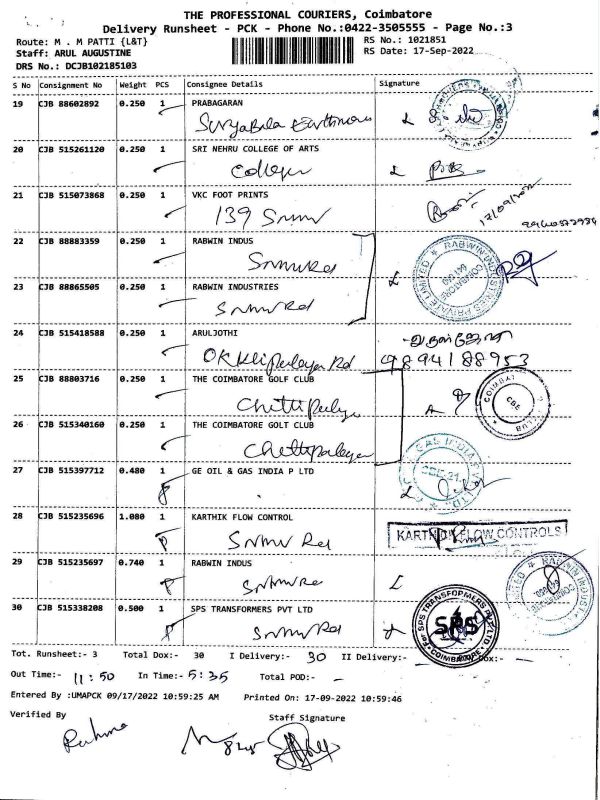 THE PROFESSIONAL COURIERS, Coimbatore
Delivery Runsheet - PCK - Phone No.:0422-3505555 - Page No.:3
Route: M . M PATTI {L&T}
RS No.: 1021851
Staff: ARUL AUGUSTINE
RS Date: 17-Sep-2022
DRS No.: DCJB102185103
S No Consignment No Weight PCS Consignee Details Signature
19 CJB 88602892 0.250 1 PRABAGARAN
20 CJB 515261120 0.250 1 SRI NEHRU COLLEGE OF ARTS
College
21 CJB 515073868 0.250 1 VKC FOOT PRINTS
139 Snmv
17/09/2022
22 CJB 88883359 0.250 1 RABWIN INDUS
Snmv Rd
RABWIN INDUSTRIES PRIVATE LIMITED
COIMBATORE
23 CJB 88865505 0.250 1 RABWIN INDUSTRIES
Snmv Rd
24 CJB 515418588 0.250 1 ARULJOTHI
அருள்ஜோதி
9894188953
25 CJB 88803716 0.250 1 THE COIMBATORE GOLF CLUB
CBE
26 CJB 515340160 0.250 1 THE COIMBATORE GOLT CLUB
Chettipalayam
27 CJB 515397712 0.480 1 GE OIL & GAS INDIA P LTD
28 CJB 515235696 1.080 1 KARTHIK FLOW CONTROL
Snmv Rd
KARTHIK FLOW CONTROLS
29 CJB 515235697 0.740 1 RABWIN INDUS
Snmv Rd
30 CJB 515338208 0.500 1 SPS TRANSFORMERS PVT LTD
Snmv Rd
SPS TRANSFORMERS PVT LTD
SPS
COIMBATORE
Tot. Runsheet:- 3 Total Dox:- 30 I Delivery:- 30 II Delivery:- Dox:-
Out Time:- 11:50 In Time:- 5:35 Total POD:-
Entered By :UMAPCK 09/17/2022 10:59:25 AM Printed On: 17-09-2022 10:59:46
Verified By Staff Signature